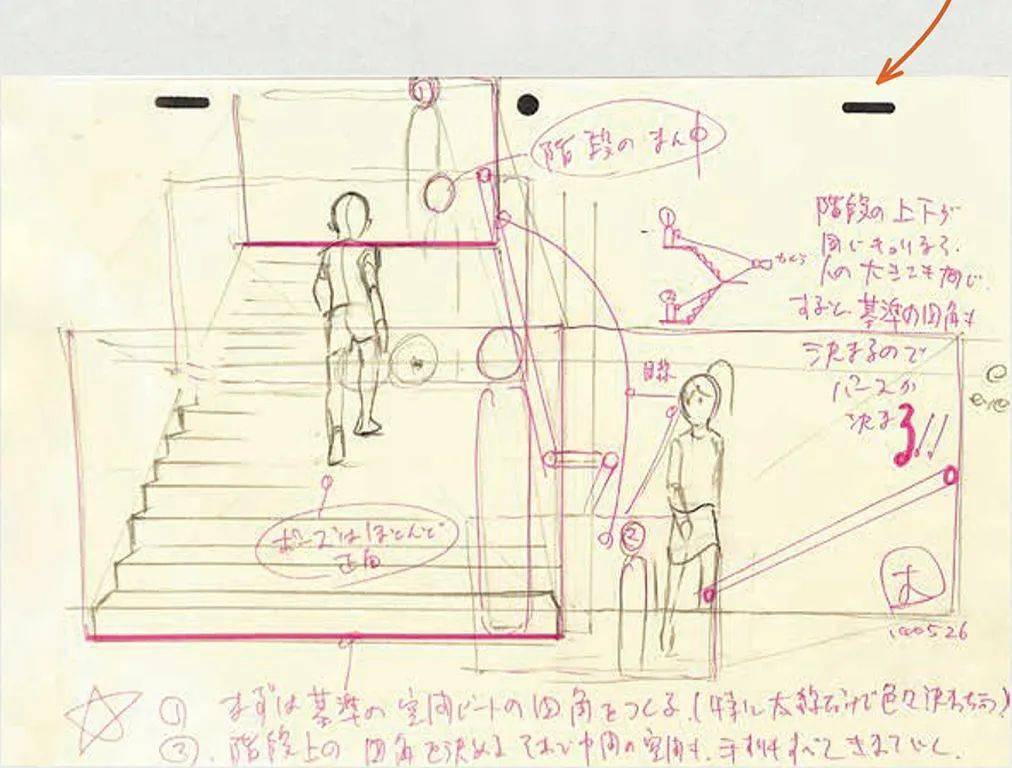 階段のまん中
階段の上下が
同じきょりなら、
人の大きさも同じ.
すると、基準の四角も
決まるので
パースが
決まる!!
①
②
カメラ
目線
eye
②
ポーズはほとんど
正面
① まずは基準の空間ビートの四角をつくる.(特に太線だけで色々決まっちゃう)
②. 階段上の四角を決める それで中間の空間も、手すりもすべてきまっていく.